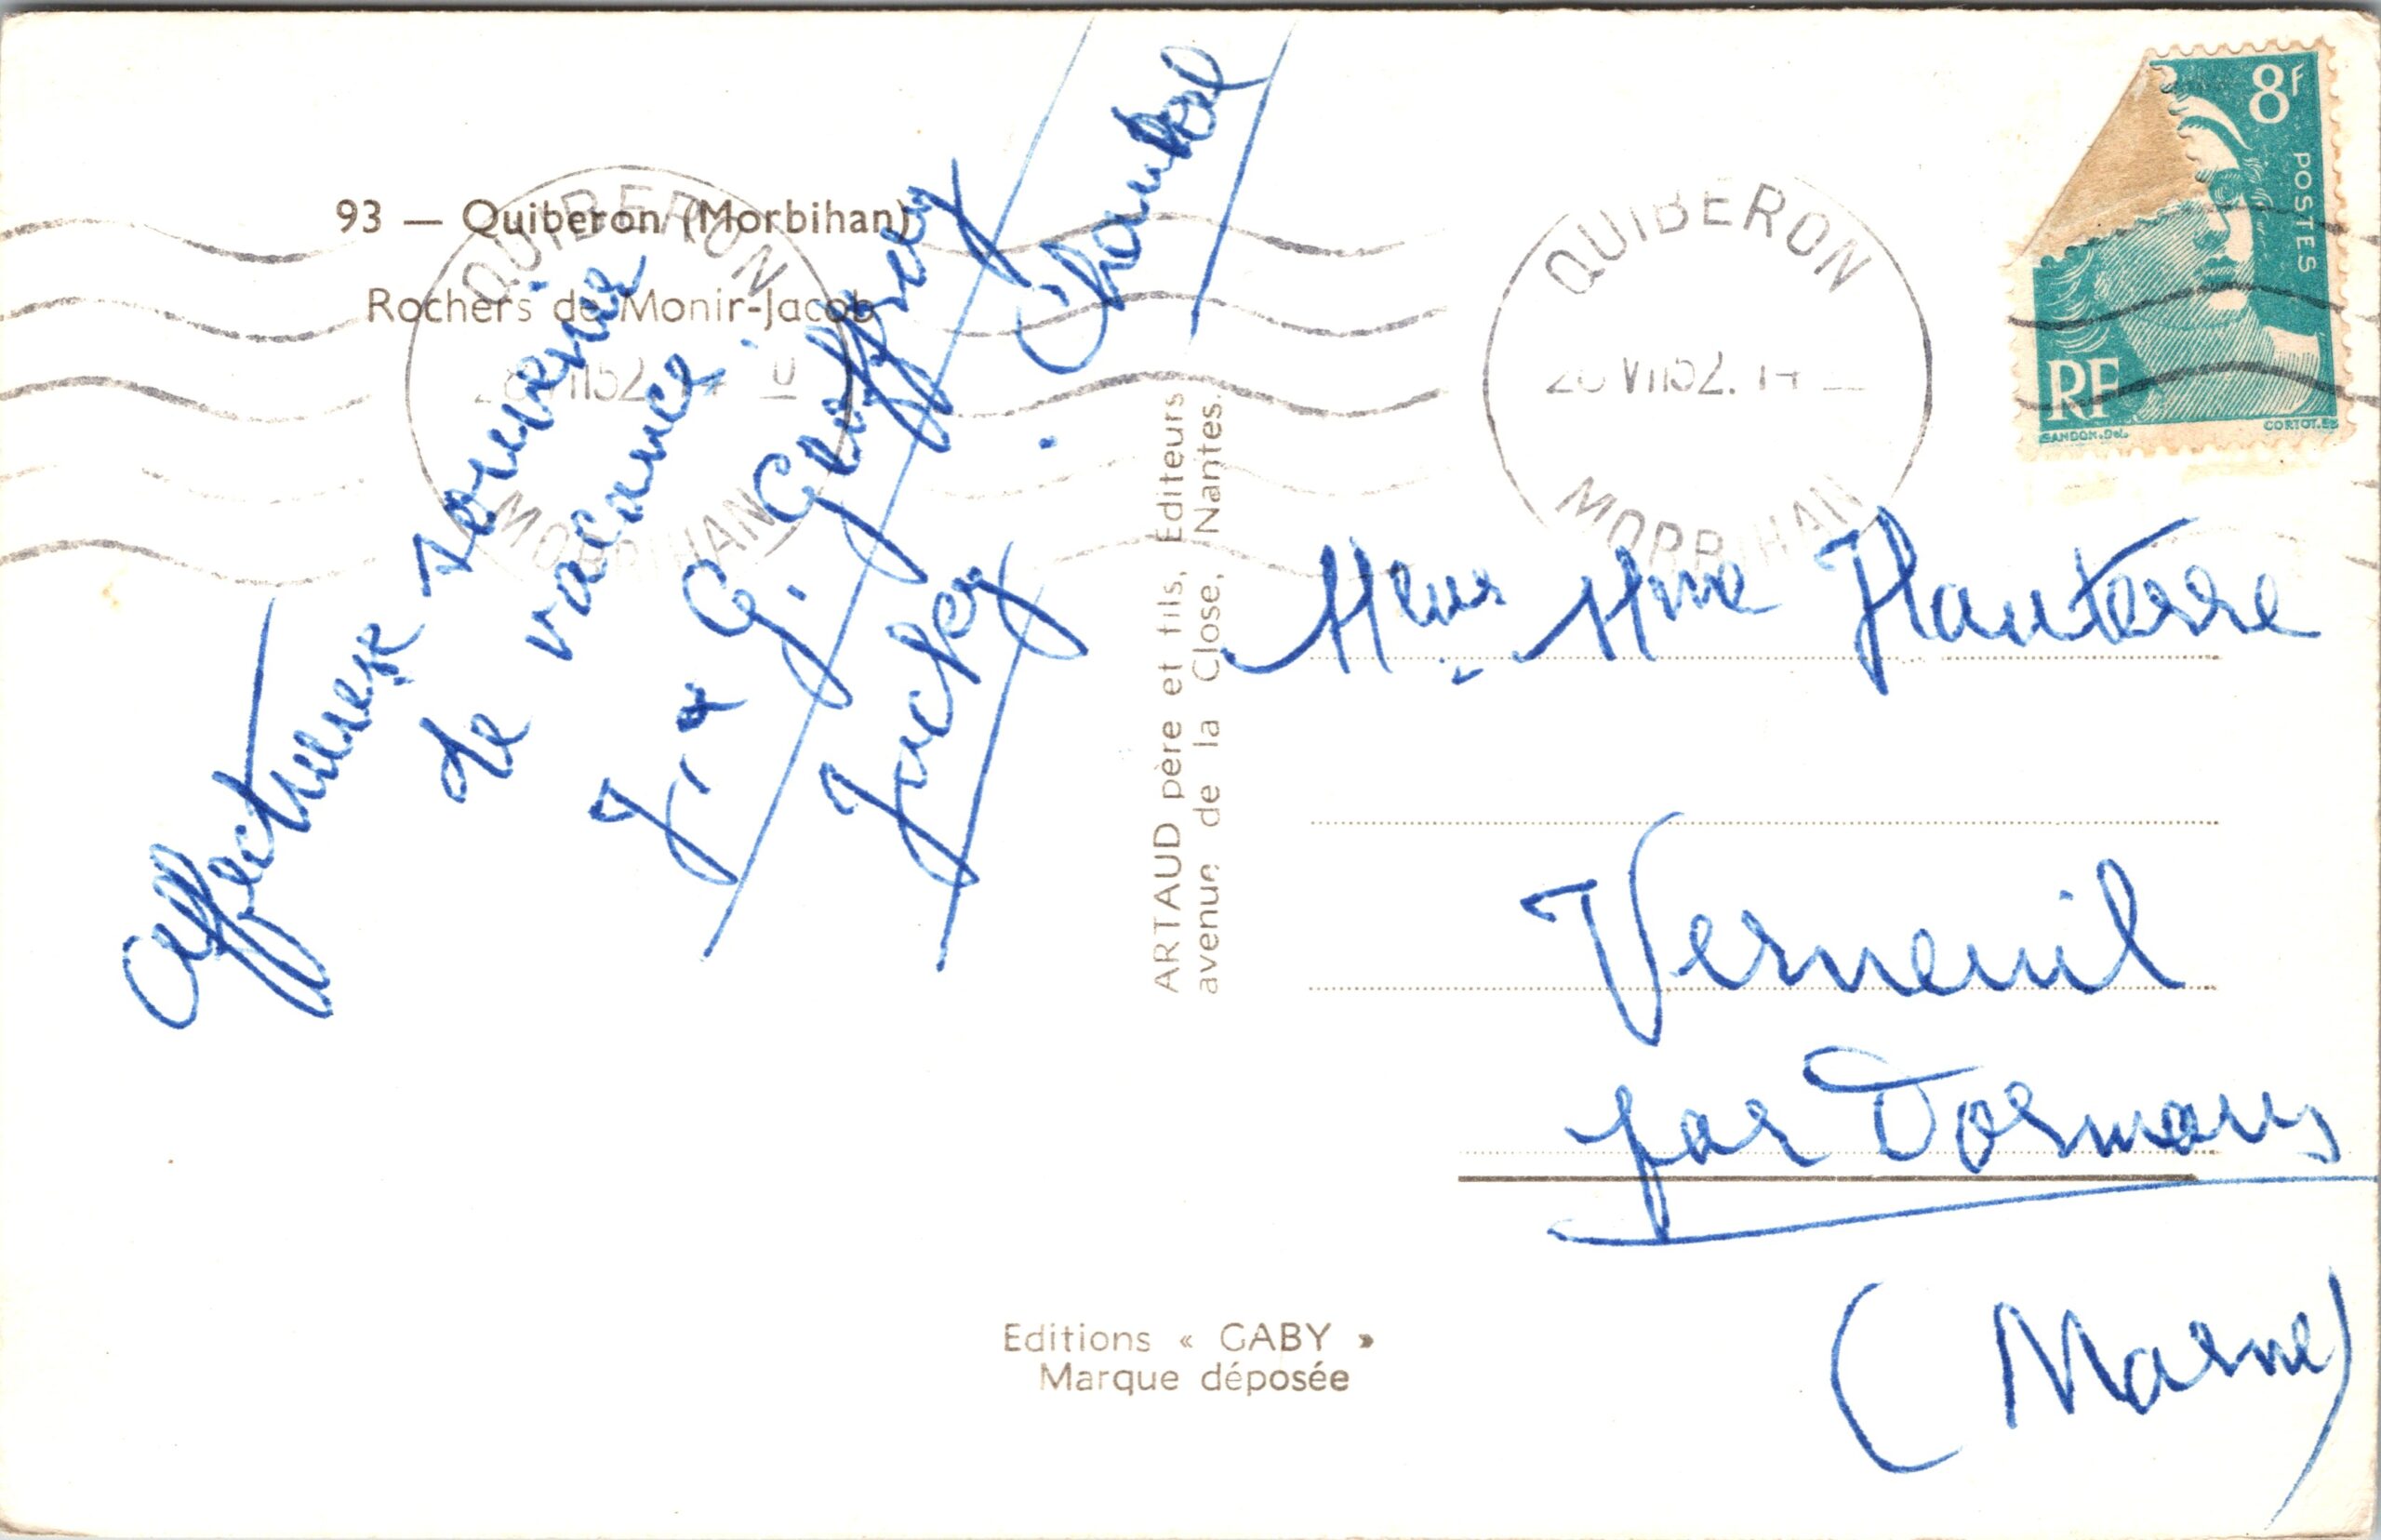 93 — Quiberon (Morbihan)
Rochers de Monir-Jacob
QUIBERON
MORBIHAN
QUIBERON
VII 52. 14
MORBIHAN
8F
POSTES
RF
GANDON.DEL.
CORTOT.SC
affectueux souvenir
de vacances.
J. & G. Geoffroy
ARTAUD père et fils, Editeurs
avenue de la Close, Nantes.
Mr & Mme Hauterre
Verneuil
par Dormans
(Marne)
Editions « GABY »
Marque déposée